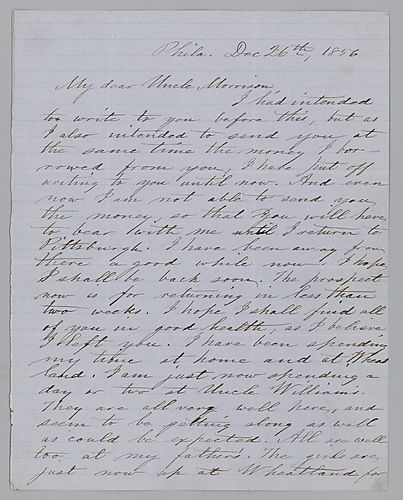 Phila. Dec 26th, 1856
My dear Uncle Morrison,
I had intended
to write to you before this, but as
I also intended to send you at
the same time the money I bor-
rowed from you, I have put off
writing to you until now. And even
now I am not able to send you
the money, so that you will have
to bear with me until I return to
Pittsburgh. I have been away from
there a good while now. I hope
I shall be back soon. The prospect
now is for returning in less than
two weeks. I hope I shall find all
of you in good health, as I believe
I left you. I have been spending
my time at home and at Wheat
land. I am just now spending a
day or two at Uncle William's.
They are all very well here, and
seem to be getting along as well
as could be expected. All are well
too at my father's. The girls are
just now up at Wheatland for